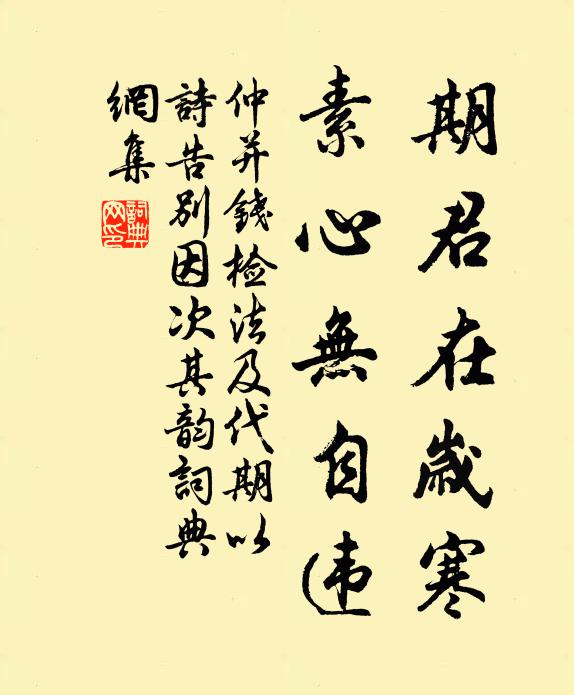 期君在歲寒
素心無自违
仲并錢检法及代期以
詩告别因次其韵詞典
網集
詞典網印